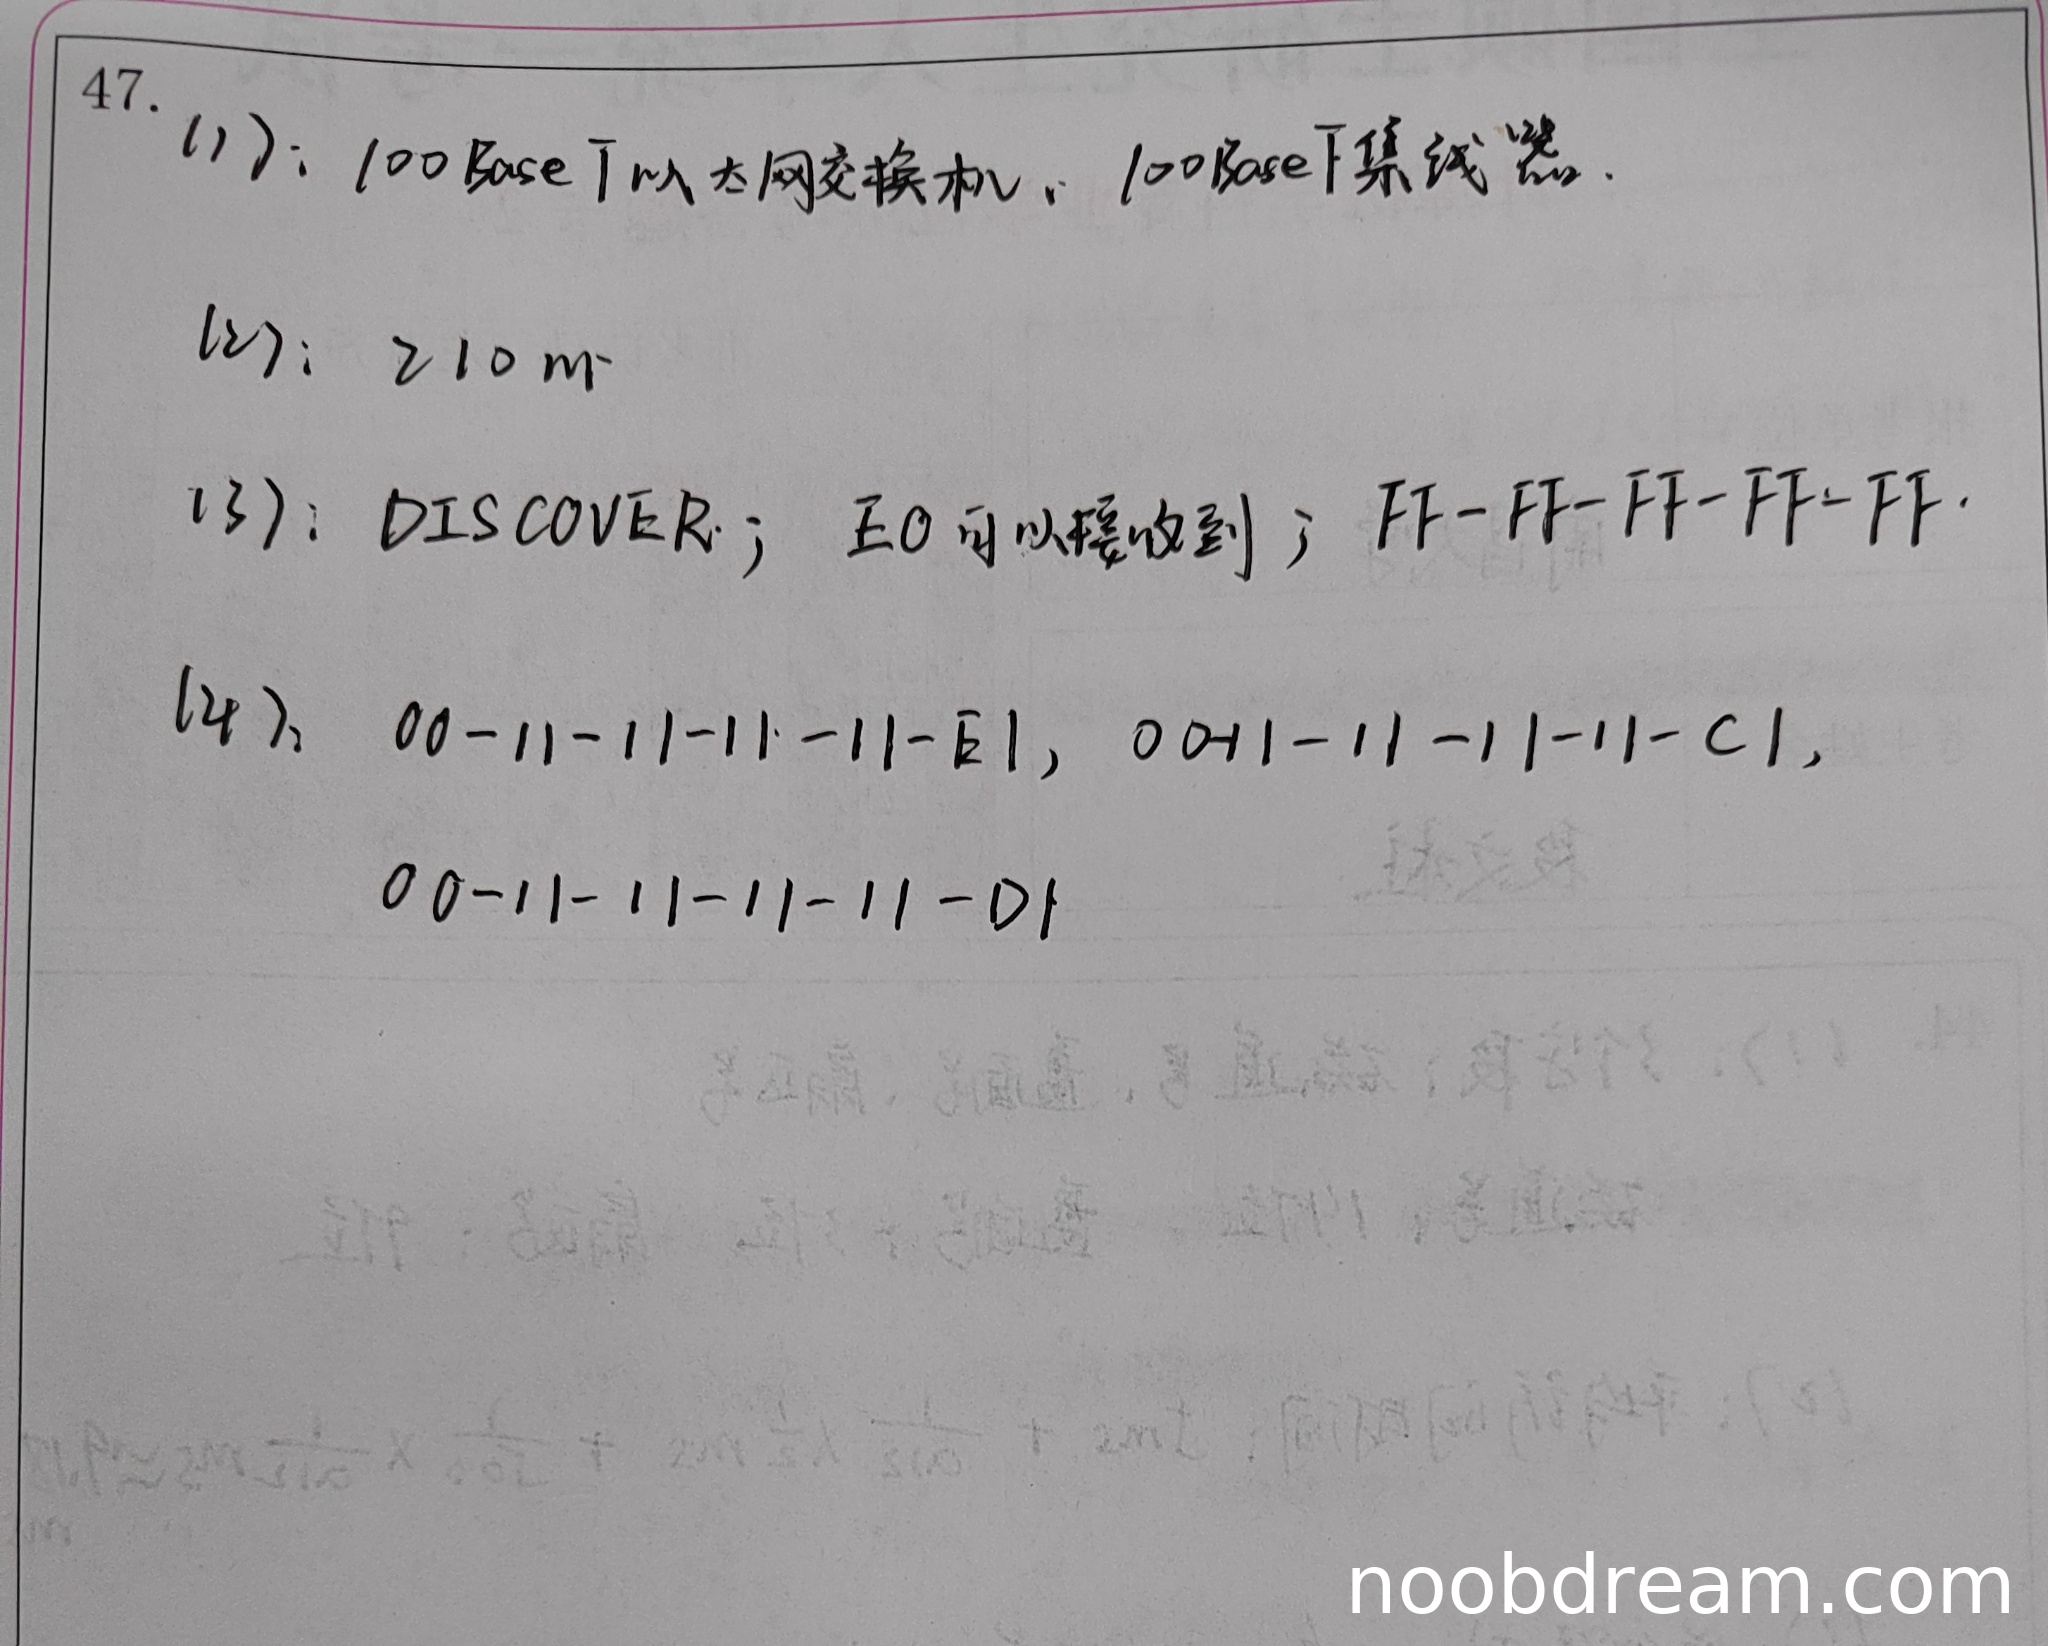 47.
(1): 100BaseT以太网交换机、100BaseT集线器.
(2): 210m
(3): DISCOVER; E0可以接收到; FF-FF-FF-FF-FF.
(4): 00-11-11-11-11-E1, 00-11-11-11-11-C1,
00-11-11-11-11-D1
noobdream.com